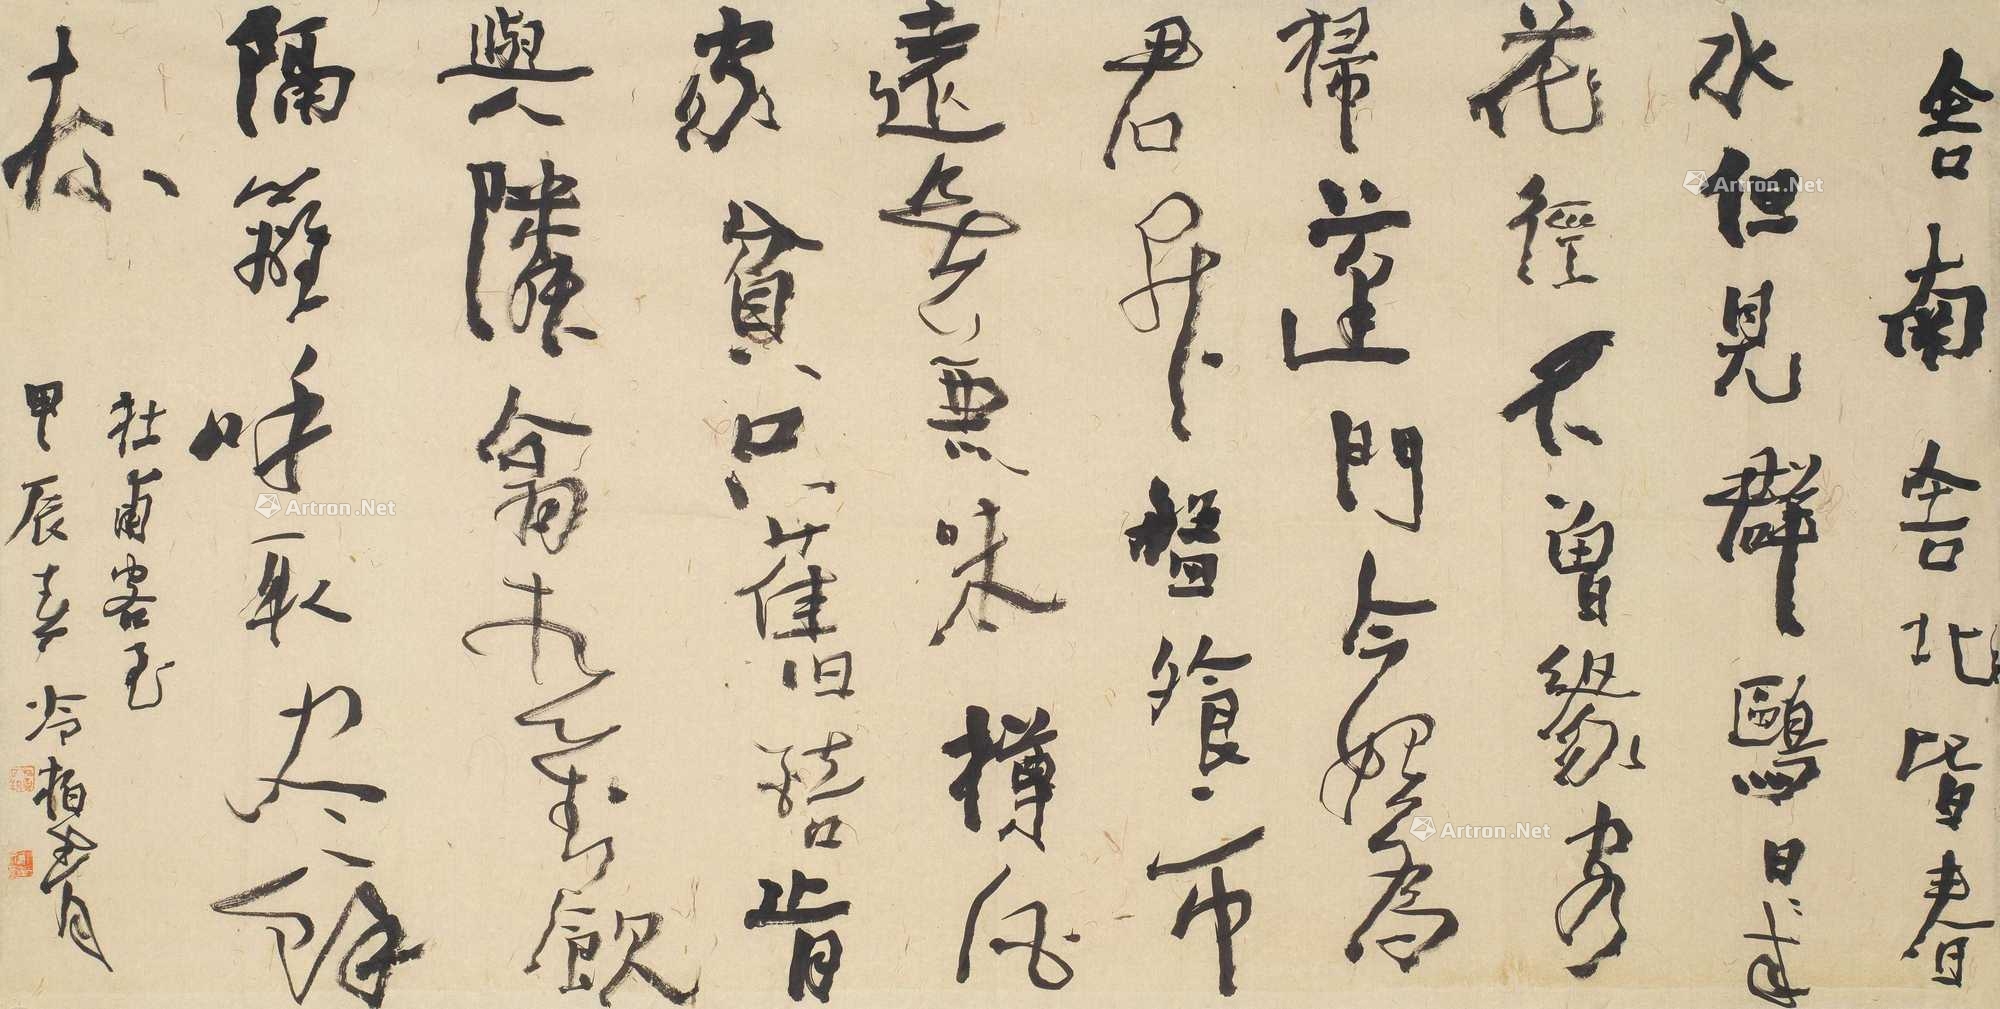 舍南舍北皆春
水但見群鷗日〻来
花徑不曾緣客
掃蓬門今始為
君開盤飧市
遠無兼味樽酒
家貧只舊醅肯
與鄰翁相對飲
隔籬呼取盡餘
杯
杜甫客至
甲辰春冷柏青
Artron.Net
Artron.Net
Artron.Net
Artron.Net